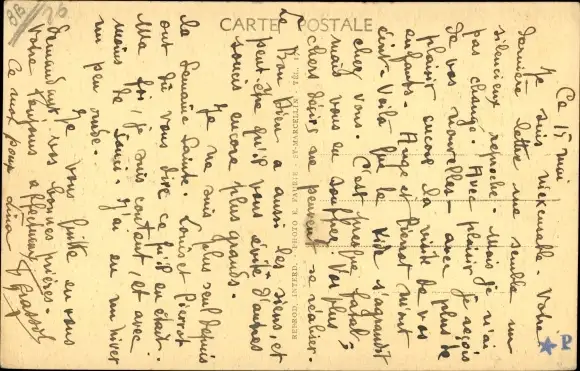 CARTE POSTALE
BB
26
Ce 15 mai
Je suis inexcusable. Votre
dernière lettre me semble un
silencieux reproche. Mais je n'ai
pas changé. Avec plaisir je reçois
de vos nouvelles – avec plus de
plaisir encore la visite de vos
enfants. Ange et Pierrot m'ont
écrit. Voilà que le vide s'agrandit
chez vous. C'est presque fatal;
mais vous en souffrez. Vos plus
chers désirs ne peuvent se réaliser.
Le Bon Dieu a aussi les siens, et
peut-être qu'il vous évite d'autres
soucis encore plus grands.
Je ne suis plus seul depuis
la Semaine Sainte. Louis et Pierrot
ont dû vous dire ce qu'il en était.
Ma foi, je suis content, et avec
moins de soucis. J'ai eu un hiver
un peu rude.
Je vous quitte en vous
demandant vos bonnes prières.
Votre toujours affectueux
Ce mot pour Lina
P